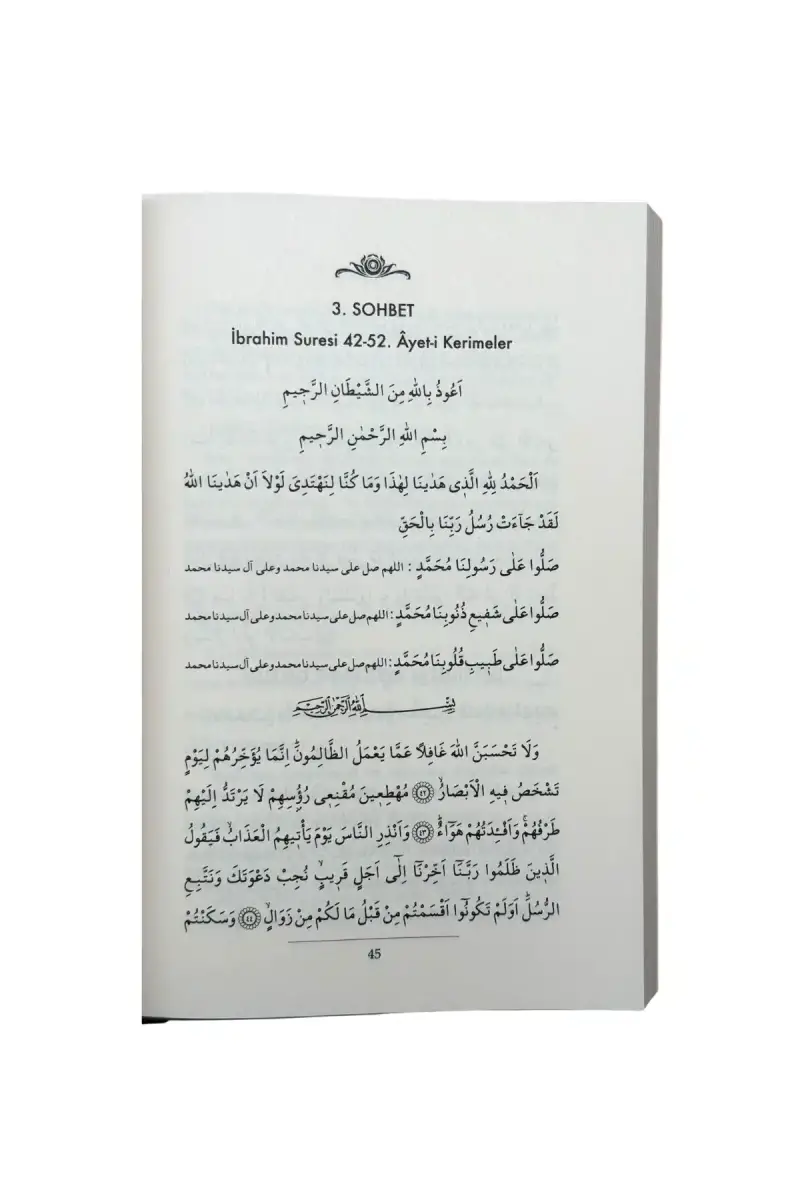 3. SOHBET
İbrahim Suresi 42-52. Âyet-i Kerimeler
اَعُوذُ بِاللّٰهِ مِنَ الشَّيْطَانِ الرَّج۪يمِ
بِسْمِ اللّٰهِ الرَّحْمٰنِ الرَّح۪يمِ
اَلْحَمْدُ لِلّٰهِ الَّذ۪ي هَدٰينَا لِهٰذَا وَمَا كُنَّا لِنَهْتَدِيَ لَوْلَٓا اَنْ هَدٰينَا اللّٰهُ
لَقَدْ جَٓاءَتْ رُسُلُ رَبِّنَا بِالْحَقِّ
صَلُّوا عَلٰى رَسُولِنَا مُحَمَّدٍ : اللهم صل على سيدنا محمد وعلى آل سيدنا محمد
صَلُّوا عَلٰى شَف۪يعِ ذُنُوبِنَا مُحَمَّدٍ : اللهم صل على سيدنا محمد وعلى آل سيدنا محمد
صَلُّوا عَلٰى طَب۪يبِ قُلُوبِنَا مُحَمَّدٍ : اللهم صل على سيدنا محمد وعلى آل سيدنا محمد
بِسْمِ اللّٰهِ الرَّحْمٰنِ الرَّحِيمِ
وَلَا تَحْسَبَنَّ اللّٰهَ غَافِلًا عَمَّا يَعْمَلُ الظَّالِمُونَۜ اِنَّمَا يُؤَخِّرُهُمْ لِيَوْمٍ
تَشْخَصُ ف۪يهِ الْاَبْصَارُۙ ﴿٤٢﴾ مُهْطِع۪ينَ مُقْنِع۪ي رُؤُ۫سِهِمْ لَا يَرْتَدُّ اِلَيْهِمْ
طَرْفُهُمْۚ وَاَفْـِٔدَتُهُمْ هَوَٓاءٌۜ ﴿٤٣﴾ وَاَنْذِرِ النَّاسَ يَوْمَ يَأْت۪يهِمُ الْعَذَابُۙ فَيَقُولُ
الَّذ۪ينَ ظَلَمُوا رَبَّنَٓا اَخِّرْنَٓا اِلٰٓى اَجَلٍ قَر۪يبٍۙ نُجِبْ دَعْوَتَكَ وَنَتَّبِعِ
الرُّسُلَۜ اَوَلَمْ تَكُونُٓوا اَقْسَمْتُمْ مِنْ قَبْلُ مَا لَكُمْ مِنْ زَوَالٍۙ ﴿٤٤﴾ وَسَكَنْتُمْ
45